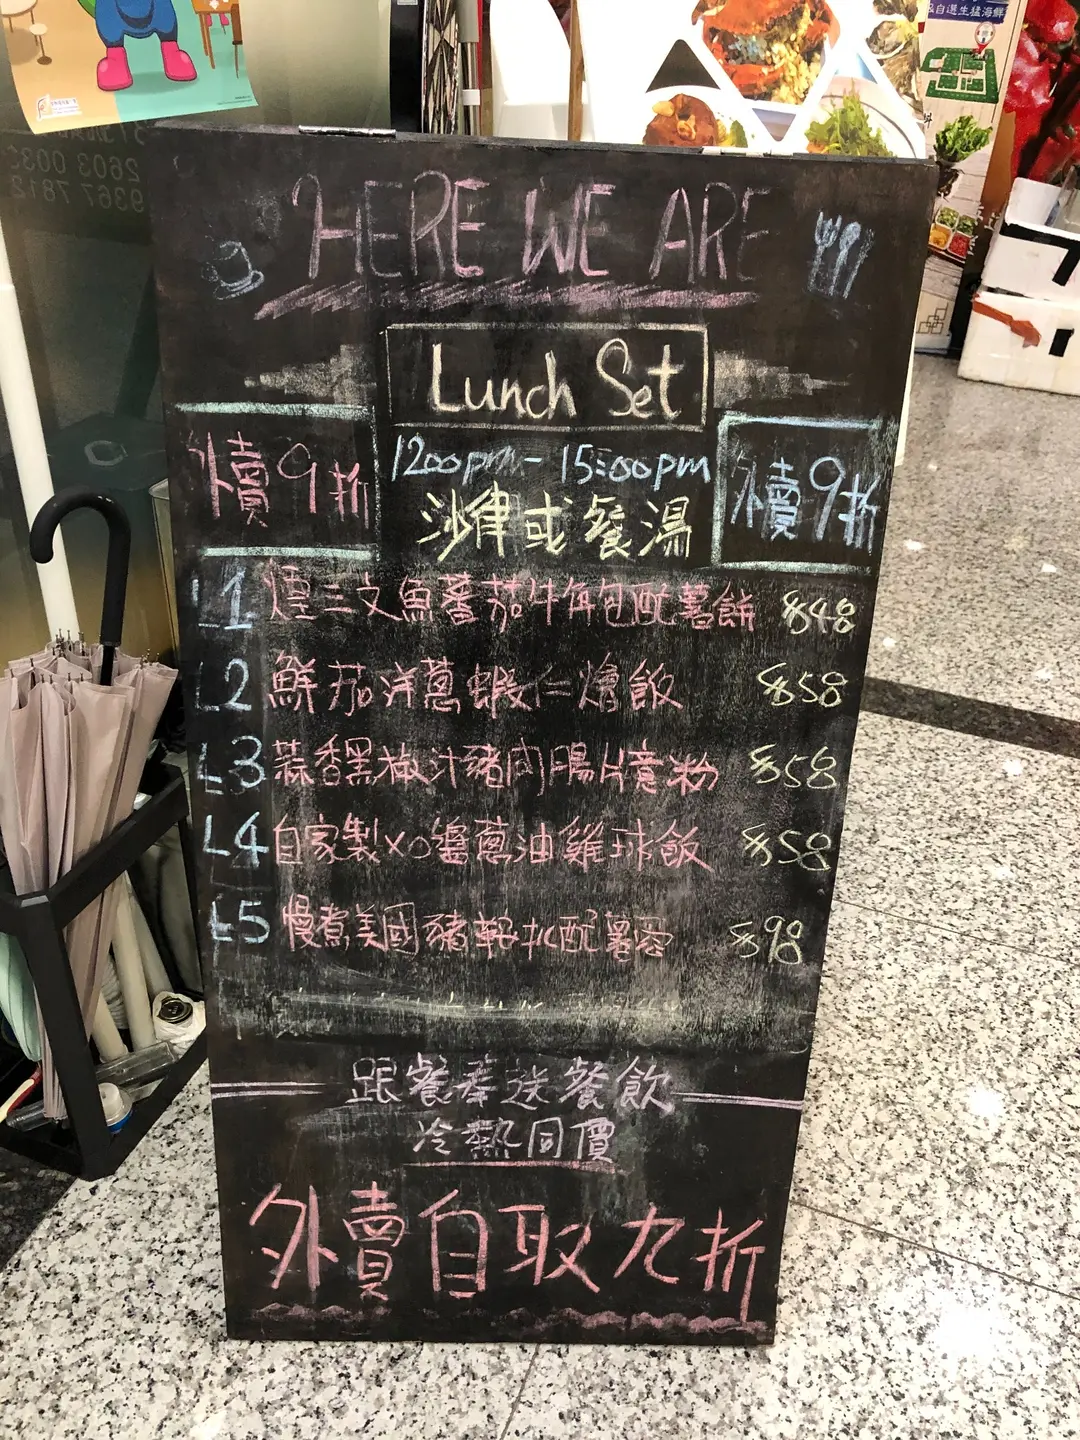 自選生猛海鮮
2603 003
9367 7812
HERE WE ARE
Lunch Set
外賣9折
1200pm - 15:00pm
外賣9折
沙律或餐湯
L1 煙三文魚蕃茄牛角包配薯餅 $48
L2 鮮茄洋蔥蝦仁燴飯 $58
L3 蒜香黑椒汁豬肉腸片意粉 $58
L4 自家製XO醬蔥油雞球飯 $58
L5 慢煮美國豬鞍扒配薯容 $98
跟餐奉送餐飲
冷熱同價
外賣自取九折